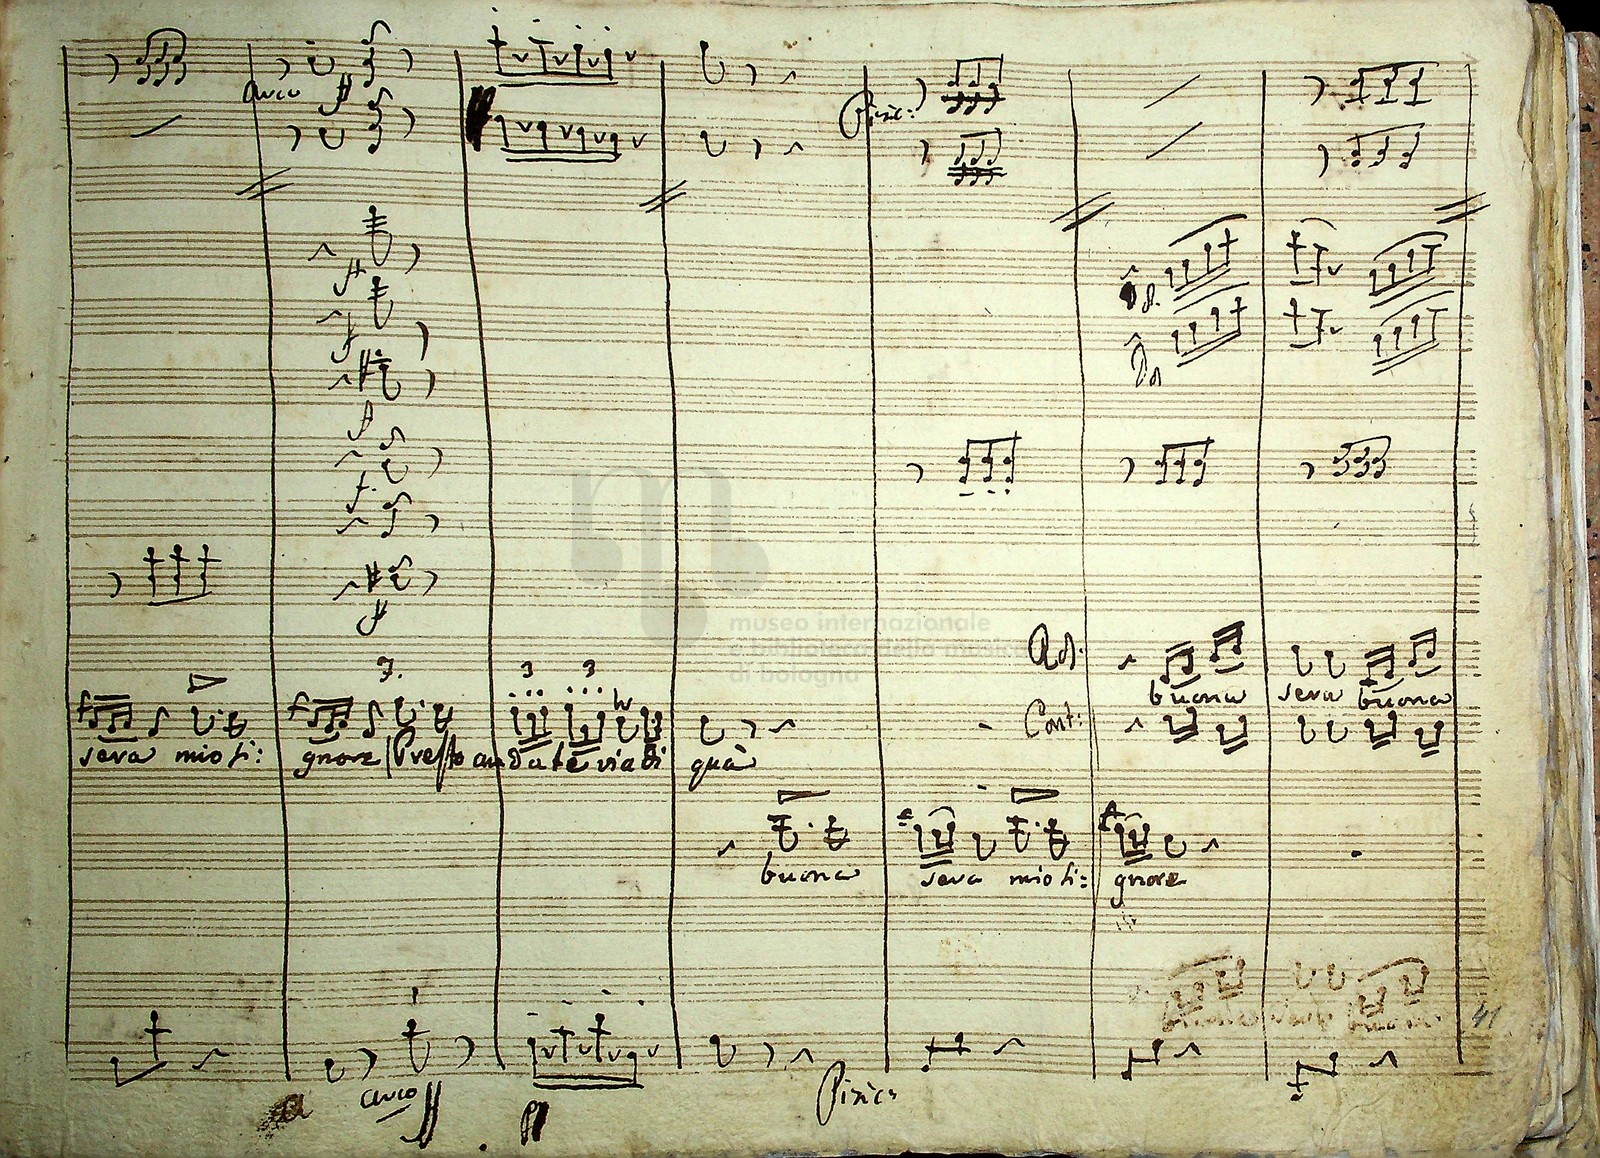 arco
Pizic:
museo internazionale
e biblioteca della musica
di bologna
3.
3 3
buona sera buona
Cont:
sera mio si: gnore Presto andate via di quà
buona sera mio si: gnore
41
arco
Pizic: